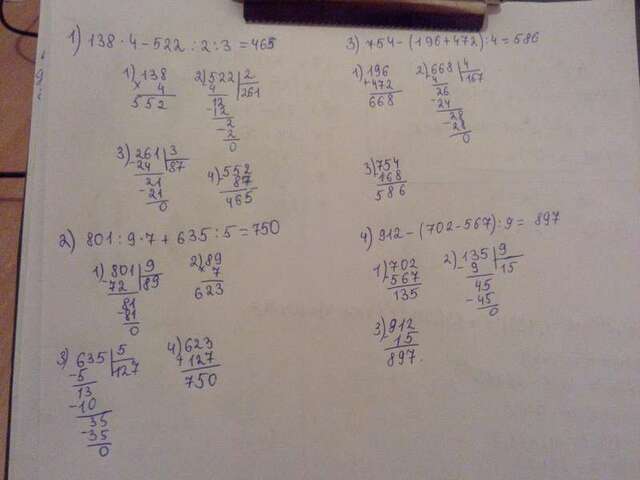 1) 138 · 4 - 522 : 2 : 3 = 465
1) 138
× 4
552
2) 522 | 2
4 | 261
12
- 12
2
- 2
0
3) 261 | 3
- 24 | 87
21
- 21
0
4) 552
- 87
465
2) 801 : 9 · 7 + 635 : 5 = 750
1) 801 | 9
- 72 | 89
81
- 81
0
2) 89
× 7
623
3) 635 | 5
- 5 | 127
13
- 10
35
- 35
0
4) 623
+ 127
750
3) 754 - (196 + 472) : 4 = 586
1) 196
+ 472
668
2) 668 | 4
- 4 | 167
26
- 24
28
- 28
0
3) 754
- 168
586
4) 912 - (702 - 567) : 9 = 897
1) 702
- 567
135
2) 135 | 9
- 9 | 15
45
- 45
0
3) 912
- 15
897.